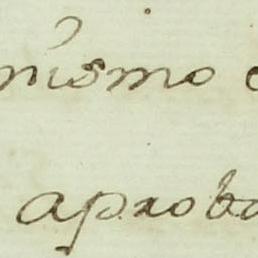 mismo
aproba